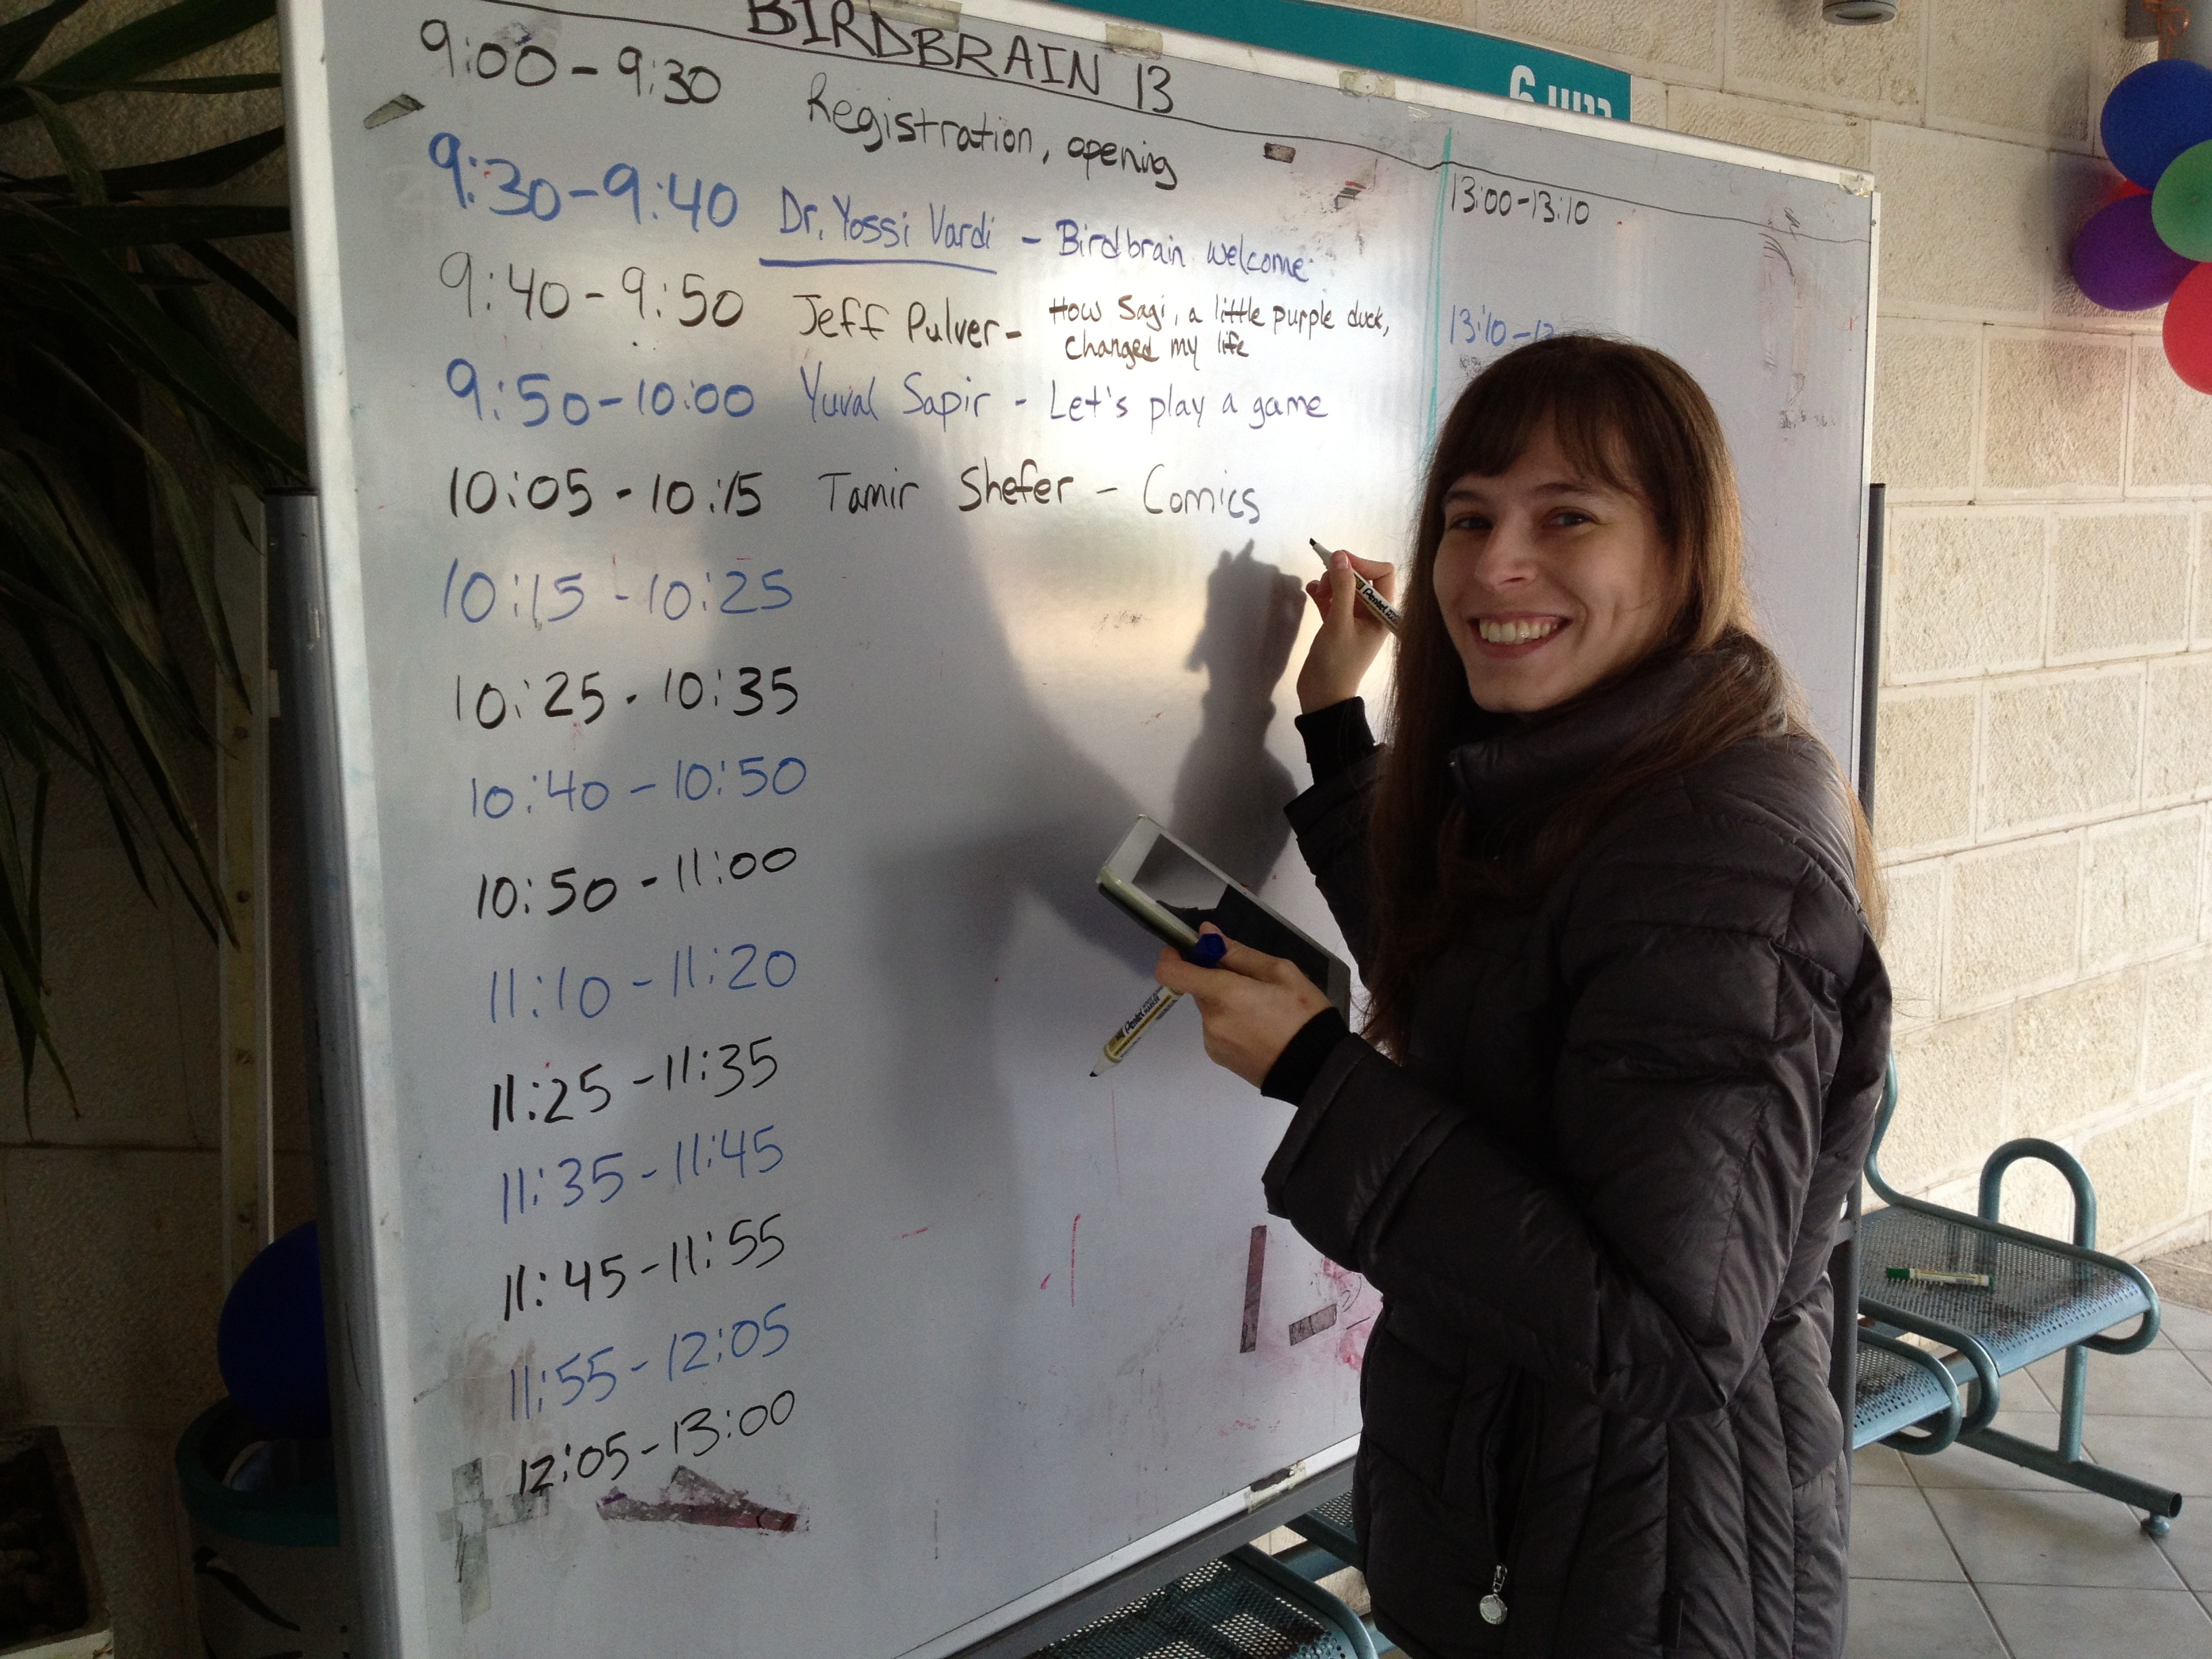 BIRDBRAIN 13
9:00 - 9:30 Registration, opening
9:30 - 9:40 Dr. Yossi Vardi - Birdbrain welcome
9:40 - 9:50 Jeff Pulver - How Sagi, a little purple duck,
changed my life
9:50 - 10:00 Yuval Sapir - Let's play a game
10:05 - 10:15 Tamir Shefer - Comics
10:15 - 10:25
10:25 - 10:35
10:40 - 10:50
10:50 - 11:00
11:10 - 11:20
11:25 - 11:35
11:35 - 11:45
11:45 - 11:55
11:55 - 12:05
12:05 - 13:00
13:00 - 13:10
13:10 -
6
Pentel
Pentel